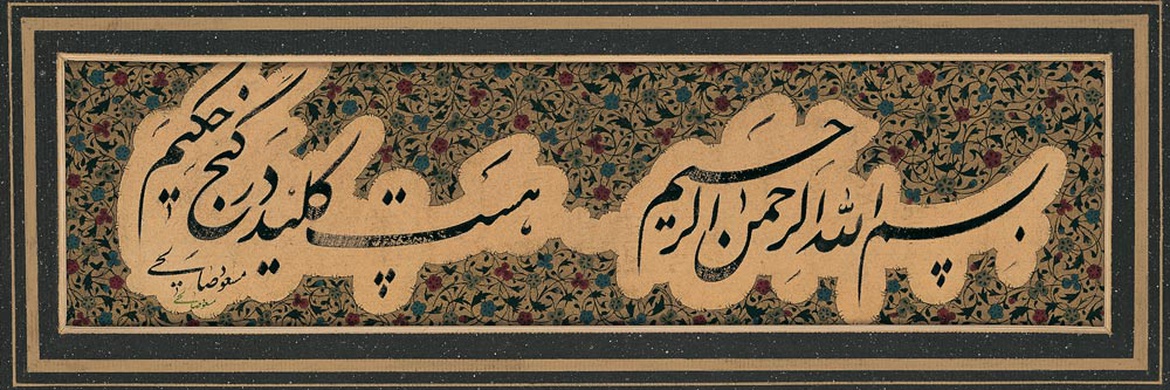 بسم الله الرحمن الرحیم هست کلید در گنج حکیم
مسعود صالحی